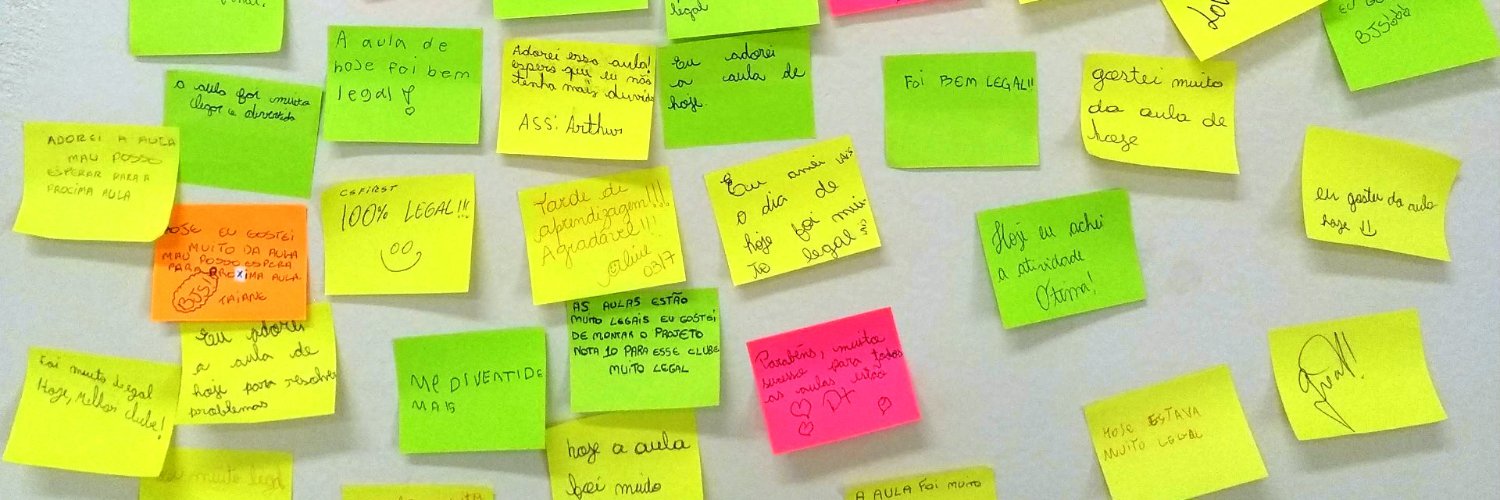 legal
EU GO
BJS
A aula de
hoje foi bem
legal!
Adorei essa aula!
espero que eu não
tenha mais duvida
ASS: Arthur
Eu adorei
a aula de
hoje
Foi BEM LEGAL!!
gostei muito
da aula de
hoje
a aula foi muito
legal e divertida
ADOREI A AULA
MAU POSSO
ESPERAR PARA A
PROCIMA AULA
CSFIRST
100% LEGAL!!!
Tarde de
aprendizagem!!!
Agradável!!!
03/7
Eu amei
o dia de
hoje foi mui-
to legal
Hoje eu achei
a atividade
Otima!
eu gostei da aula
hoje
HOJE EU GOSTEI
MUITO DA AULA
MAU POSSO ESPERA
PARA PROXIMA AULA
BJS
TAIANE
Eu adorei
a aula de
hoje para resolver
problemas
Foi muito legal
Hoje, Melhor clube!
ME DIVERTI DE
MAIS
AS AULAS ESTÃO
MUITO LEGAIS EU GOSTEI
DE MONTAR O PROJETO
NOTA 10 PARA ESSE CLUBE
MUITO LEGAL
Parabéns, muito
sucesso para todos
as aulas estão
D+
HOJE ESTAVA
MUITO LEGAL
muito legal
hoje a aula
foi muito
A AULA FOI MUITO